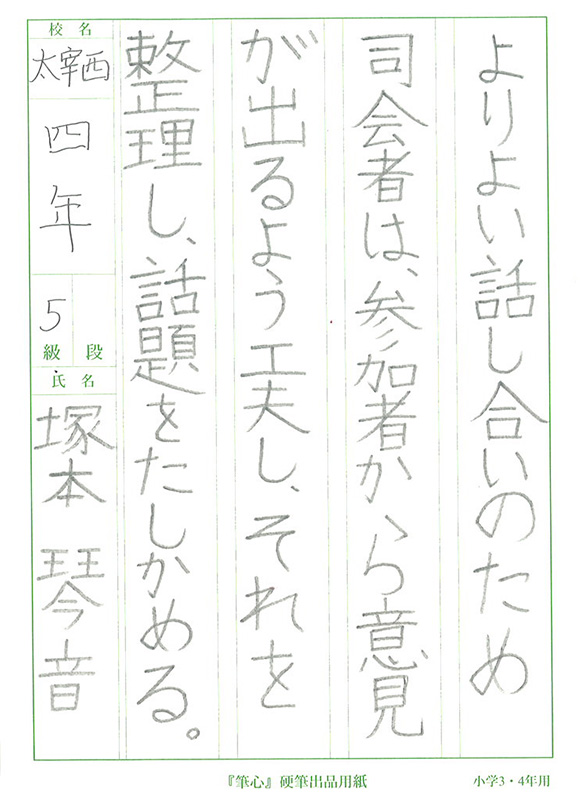 よりよい話し合いのため
司会者は、参加者から意見
が出るよう工夫し、それを
整理し、話題をたしかめる。
校名
太宰西
四年
5
級 段
氏名
塚本 琴音
『筆心』硬筆出品用紙
小学3・4年用